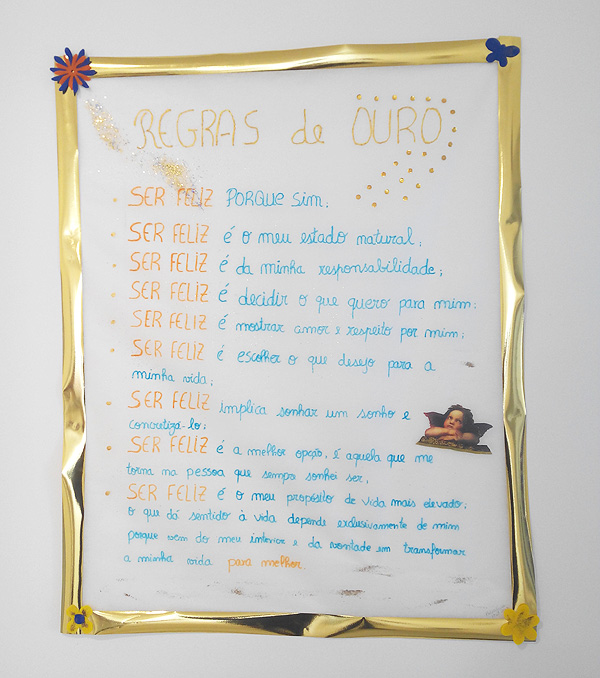 REGRAS de OURO
SER FELIZ PORQUE sim;
SER FELIZ é o meu estado natural;
SER FELIZ é da minha responsabilidade;
SER FELIZ é decidir o que quero para mim;
SER FELIZ é mostrar amor e respeito por mim;
SER FELIZ é escolher o que desejo para a
minha vida;
SER FELIZ implica sonhar um sonho e
concretizá-lo;
SER FELIZ é a melhor opção, é aquela que me
torna na pessoa que sempre sonhei ser;
SER FELIZ é o meu propósito de vida mais elevado;
o que dá sentido à vida depende exclusivamente de mim
porque vem do meu interior e da vontade em transformar
a minha vida para melhor.